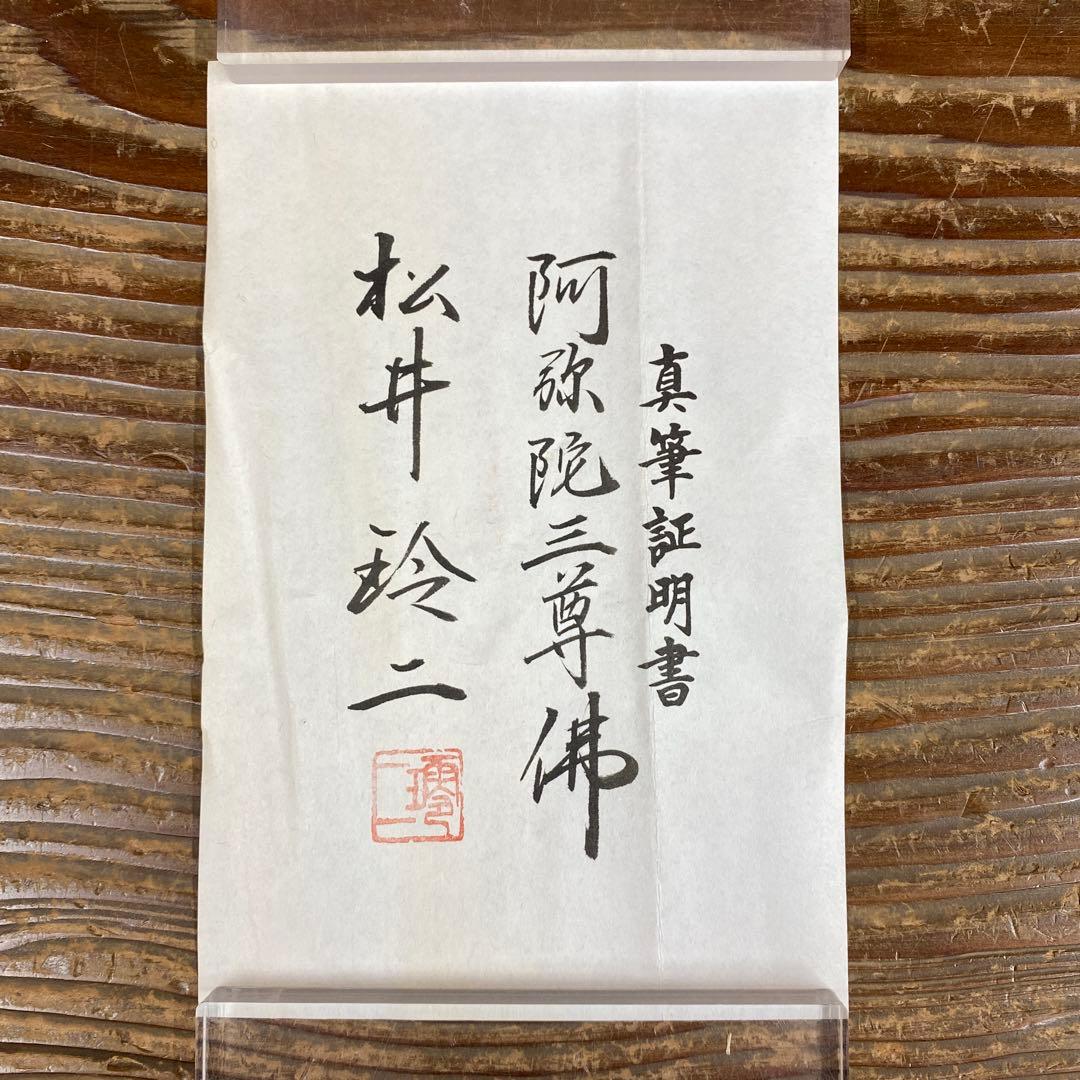 真筆証明書
阿弥陀三尊佛
松井玲二